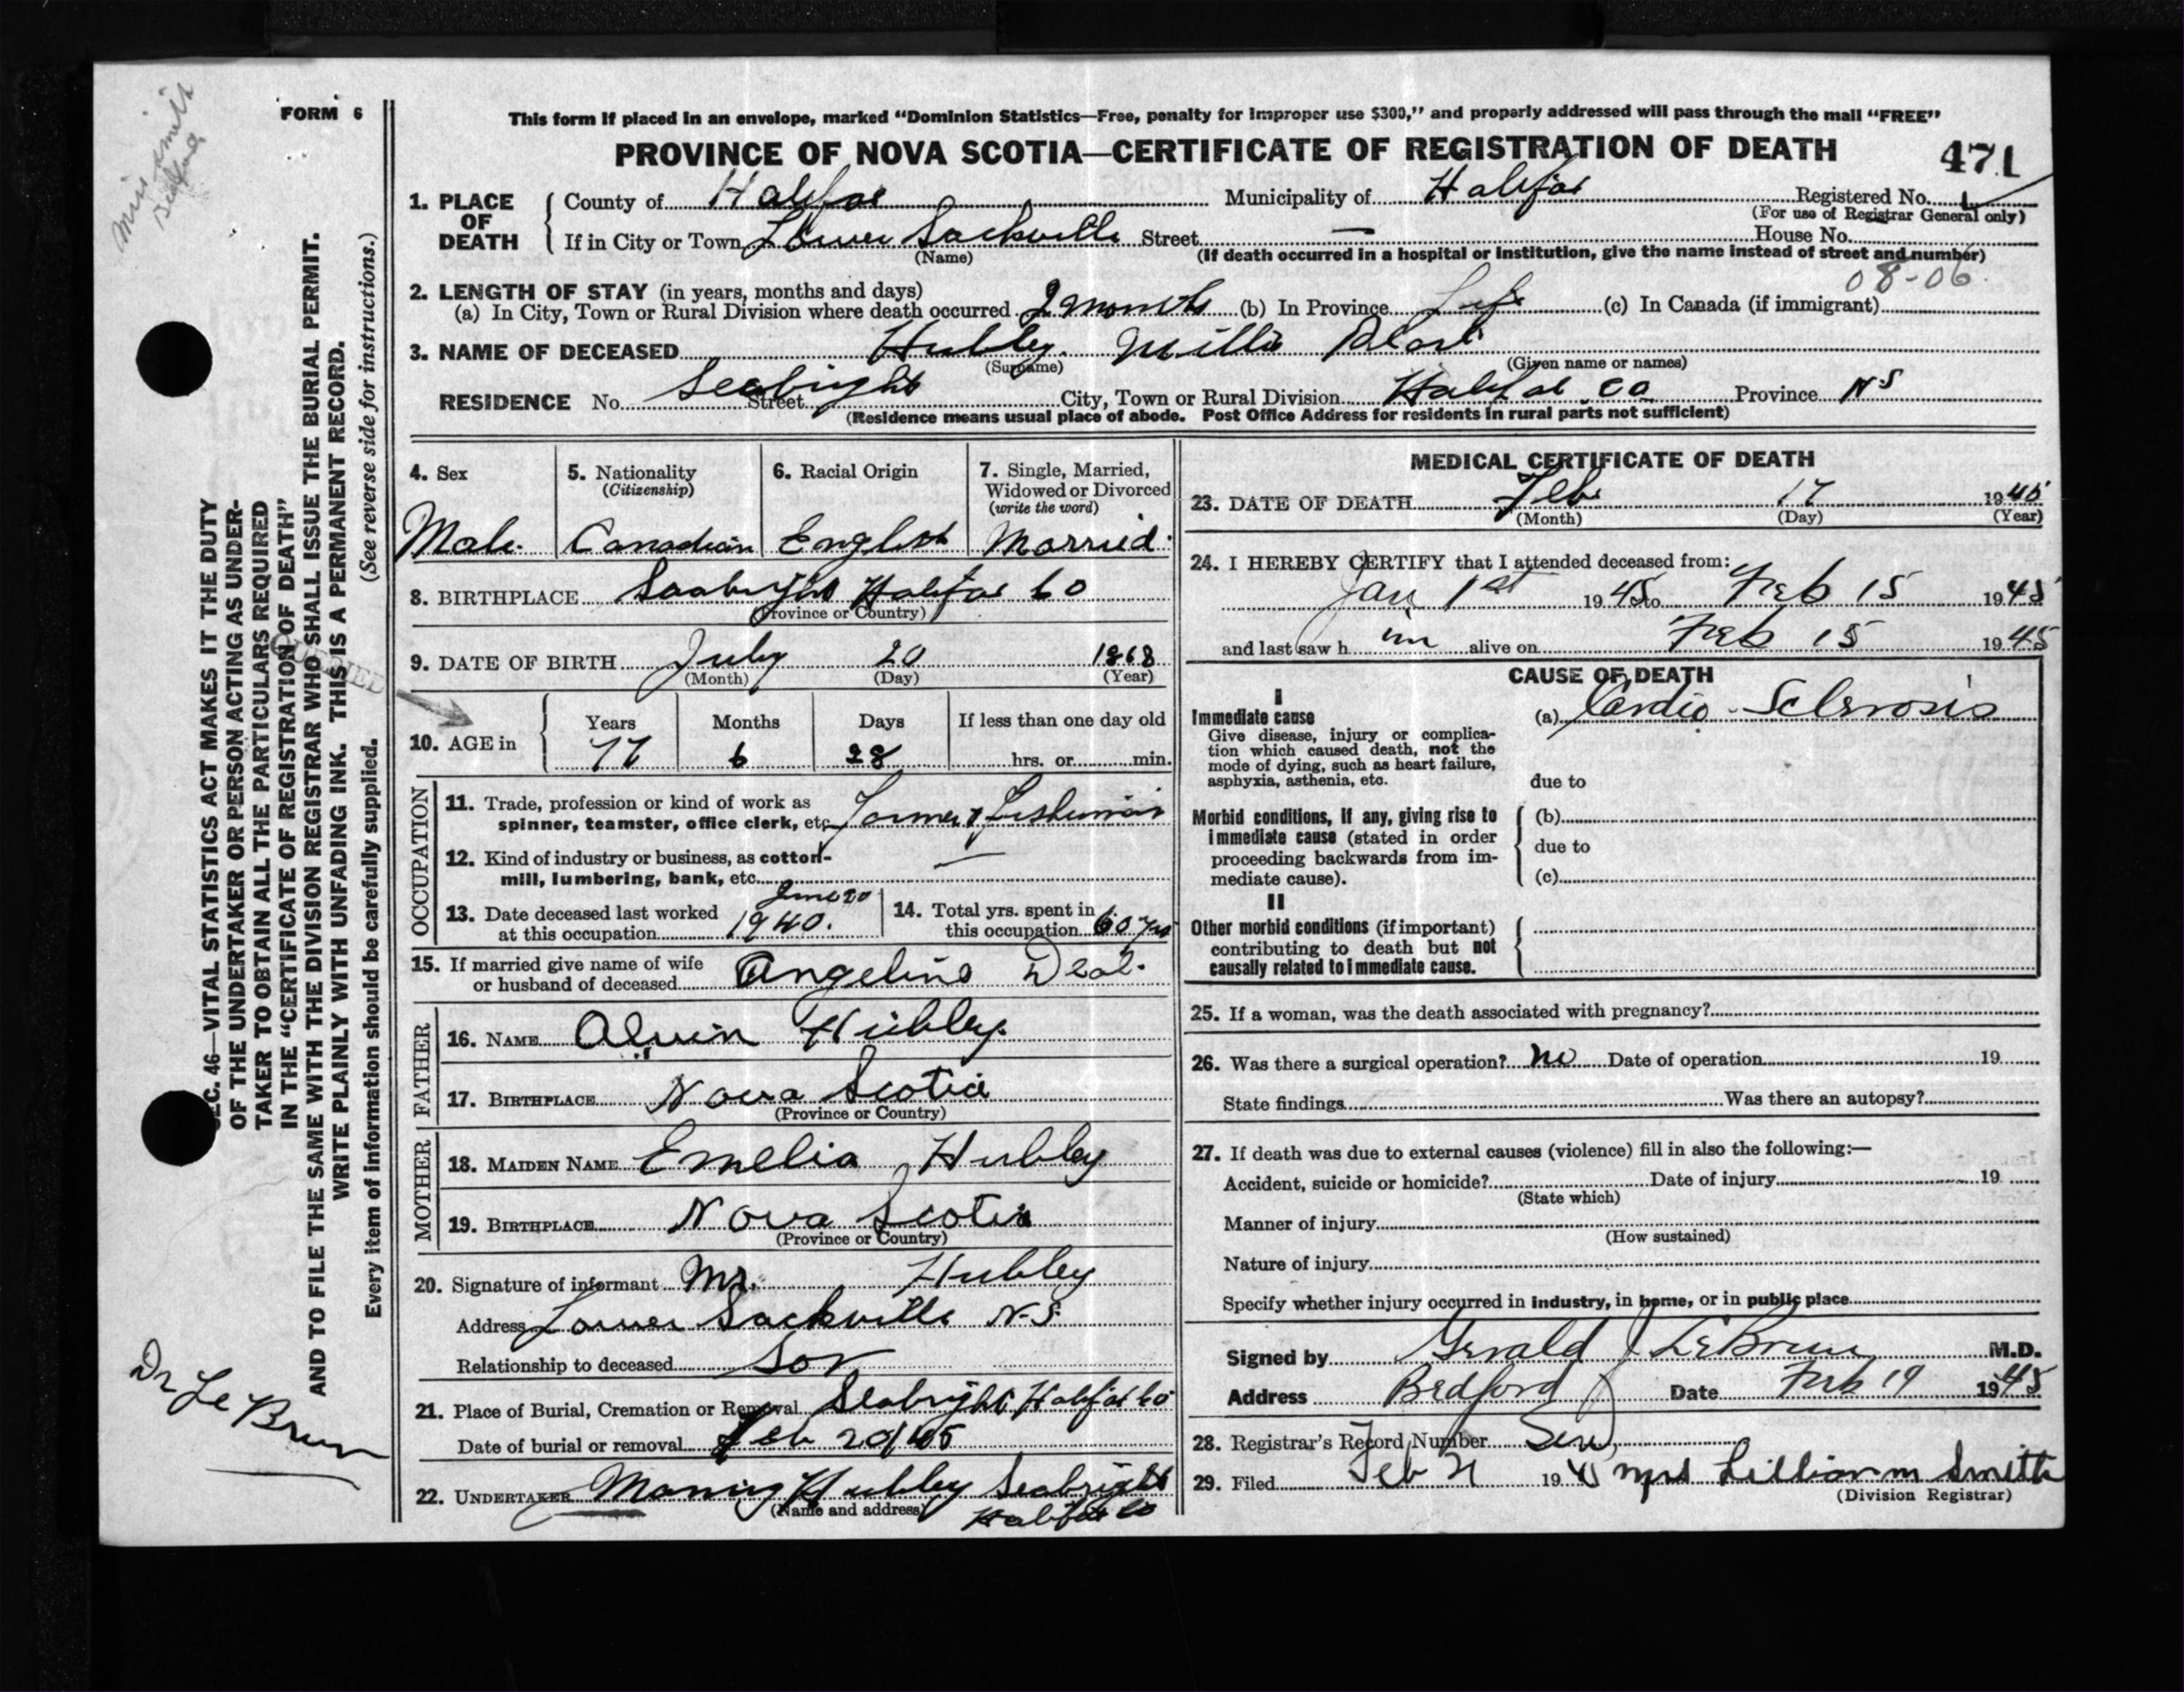 Miss Smith
Bedford
FORM 6
This form if placed in an envelope, marked "Dominion Statistics—Free, penalty for improper use $300," and properly addressed will pass through the mail "FREE"
PROVINCE OF NOVA SCOTIA—CERTIFICATE OF REGISTRATION OF DEATH
471
1. PLACE OF DEATH
County of Halifax Municipality of Halifax Registered No.
(For use of Registrar General only)
If in City or Town Lower Sackville Street — House No.
(Name) (If death occurred in a hospital or institution, give the name instead of street and number)
08-06
2. LENGTH OF STAY (in years, months and days)
(a) In City, Town or Rural Division where death occurred 2 months (b) In Province Life (c) In Canada (if immigrant)
3. NAME OF DECEASED Hubley Millis
(Surname) (Given name or names)
RESIDENCE No. Seabright Street City, Town or Rural Division Halifax Co Province N S
(Residence means usual place of abode. Post Office Address for residents in rural parts not sufficient)
4. Sex
Male
5. Nationality
(Citizenship)
Canadian
6. Racial Origin
English
7. Single, Married,
Widowed or Divorced
(write the word)
Married
8. BIRTHPLACE Seabright Halifax Co
(Province or Country)
9. DATE OF BIRTH July 20 1868
(Month) (Day) (Year)
QUERIED
10. AGE in
Years Months Days If less than one day old
77 6 28 hrs. or min.
OCCUPATION
11. Trade, profession or kind of work as
spinner, teamster, office clerk, etc. Farmer & Fisherman
12. Kind of industry or business, as cotton-
mill, lumbering, bank, etc. —
13. Date deceased last worked
at this occupation June 20 1940.
14. Total yrs. spent in
this occupation 60 yrs
15. If married give name of wife
or husband of deceased Angeline Deal.
FATHER
16. NAME Alvin Hubley.
17. BIRTHPLACE Nova Scotia
(Province or Country)
MOTHER
18. MAIDEN NAME Emelia Hubley
19. BIRTHPLACE Nova Scotia
(Province or Country)
20. Signature of informant Mr. Hubley
Address Lower Sackville N-S
Relationship to deceased Son
21. Place of Burial, Cremation or Removal Seabright Halifax Co
Date of burial or removal Feb 20/45
22. UNDERTAKER Hubley Seabright
(Name and address) Halifax Co
MEDICAL CERTIFICATE OF DEATH
23. DATE OF DEATH Feb 17 1945
(Month) (Day) (Year)
24. I HEREBY CERTIFY that I attended deceased from:
Jan 1st 1945 to Feb 15 1945
and last saw h im alive on Feb 15 1945
CAUSE OF DEATH
I
Immediate cause
Give disease, injury or complica-
tion which caused death, not the
mode of dying, such as heart failure,
asphyxia, asthenia, etc.
(a) Cardio-Sclerosis
due to
Morbid conditions, if any, giving rise to
immediate cause (stated in order
proceeding backwards from im-
mediate cause).
(b)
due to
(c)
II
Other morbid conditions (if important)
contributing to death but not
causally related to immediate cause.
25. If a woman, was the death associated with pregnancy?
26. Was there a surgical operation? no Date of operation 19
State findings Was there an autopsy?
27. If death was due to external causes (violence) fill in also the following:—
Accident, suicide or homicide? Date of injury 19
(State which)
Manner of injury
(How sustained)
Nature of injury
Specify whether injury occurred in industry, in home, or in public place
Signed by Gerald J LeBrun M.D.
Address Bedford Date Feb 19 1945
28. Registrar's Record Number
29. Filed Feb 21 1945 Mrs Lillian M Smith
(Division Registrar)
SEC. 46—VITAL STATISTICS ACT MAKES IT THE DUTY
OF THE UNDERTAKER OR PERSON ACTING AS UNDER-
TAKER TO OBTAIN ALL THE PARTICULARS REQUIRED
IN THE "CERTIFICATE OF REGISTRATION OF DEATH"
AND TO FILE THE SAME WITH THE DIVISION REGISTRAR WHO SHALL ISSUE THE BURIAL PERMIT.
WRITE PLAINLY WITH UNFADING INK. THIS IS A PERMANENT RECORD.
Every item of information should be carefully supplied. (See reverse side for instructions.)
Dr Le Brun